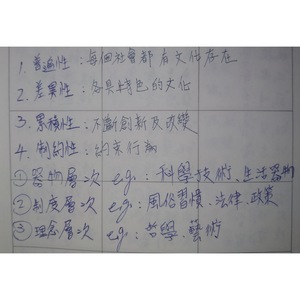 1. 普遍性：每個社會都有文化存在
2. 差異性：各具特色的文化
3. 累積性：不斷創新及改變
4. 制約性：約束行為
①器物層次 eg：科學技術、生活器物
②制度層次 eg：風俗習慣、法律、政策
③理念層次 eg：哲學、藝術